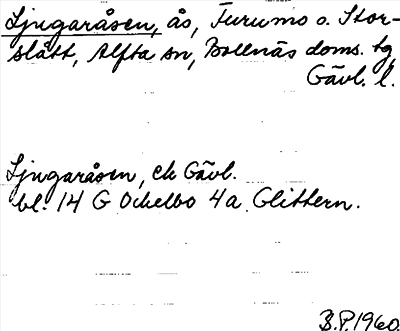 Ljngaråsen, ås, Furumo o. Stor-
slått, Alfta sn, Bollnäs doms. tg,
Gävl. l.
Ljngaråsen, ek Gävl.
bl. 14 G Ockelbo 4a Glittern.
B.P. 1960.